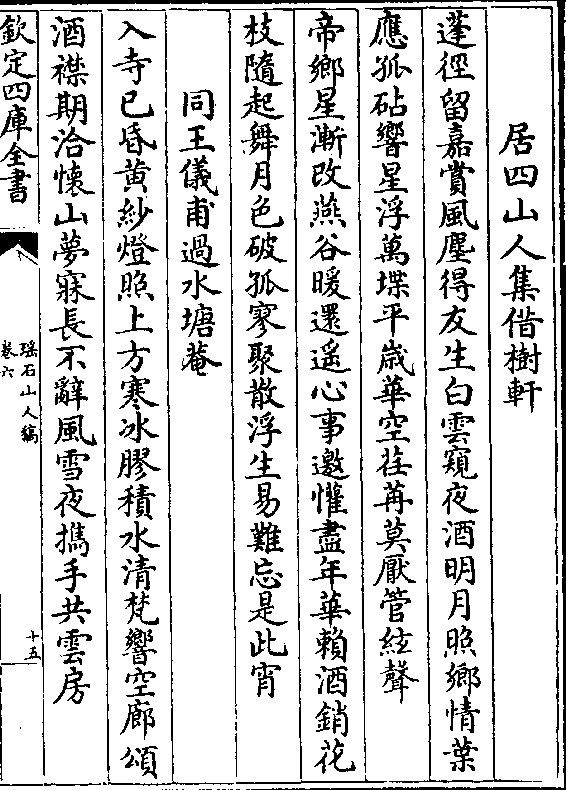 居四山人集借樹軒
蓬徑留嘉賞風塵得友生白雲窺夜酒明月照鄉情葉
應孤砧響星浮萬堞平歲華空荏苒莫厭管絃聲
帝鄉星漸改燕谷暖還遥心事邀懽盡年華賴酒銷花
枝隨起舞月色破孤寥聚散浮生易難忘是此宵
同王儀甫過水塘菴
入寺已昏黄紗燈照上方寒冰膠積水清梵響空廊頌
酒襟期洽懷山夢寐長不辭風雪夜攜手共雲房
欽定四庫全書
瑶石山人稿
卷六
十五